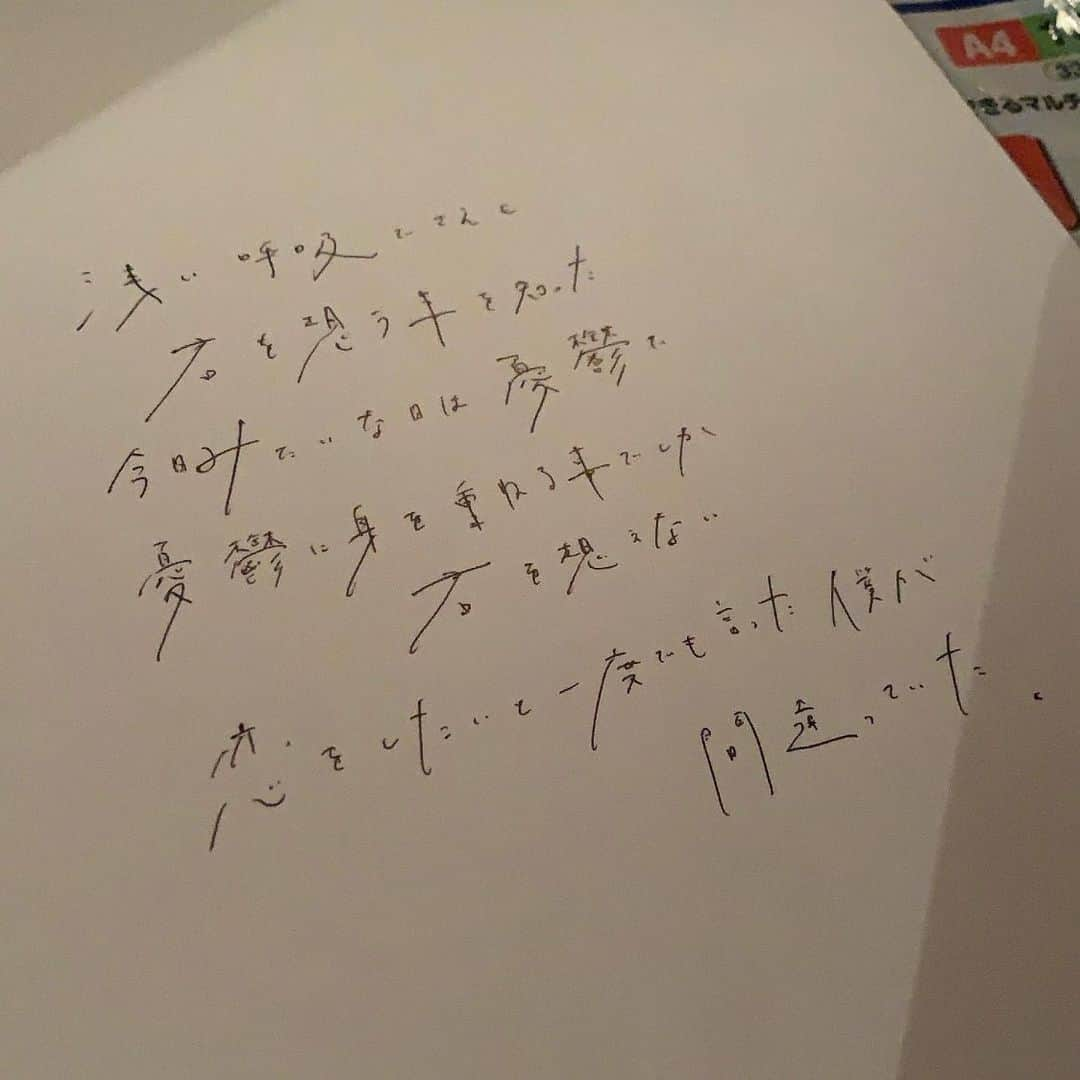 浅い呼吸でさえ
君を想う事を知った
今日みたいな日は憂鬱で
憂鬱に身を重ねる事でしか
君を想えない
恋をしたいと一度でも言った僕が
間違っていた。
A4
きるマルチ